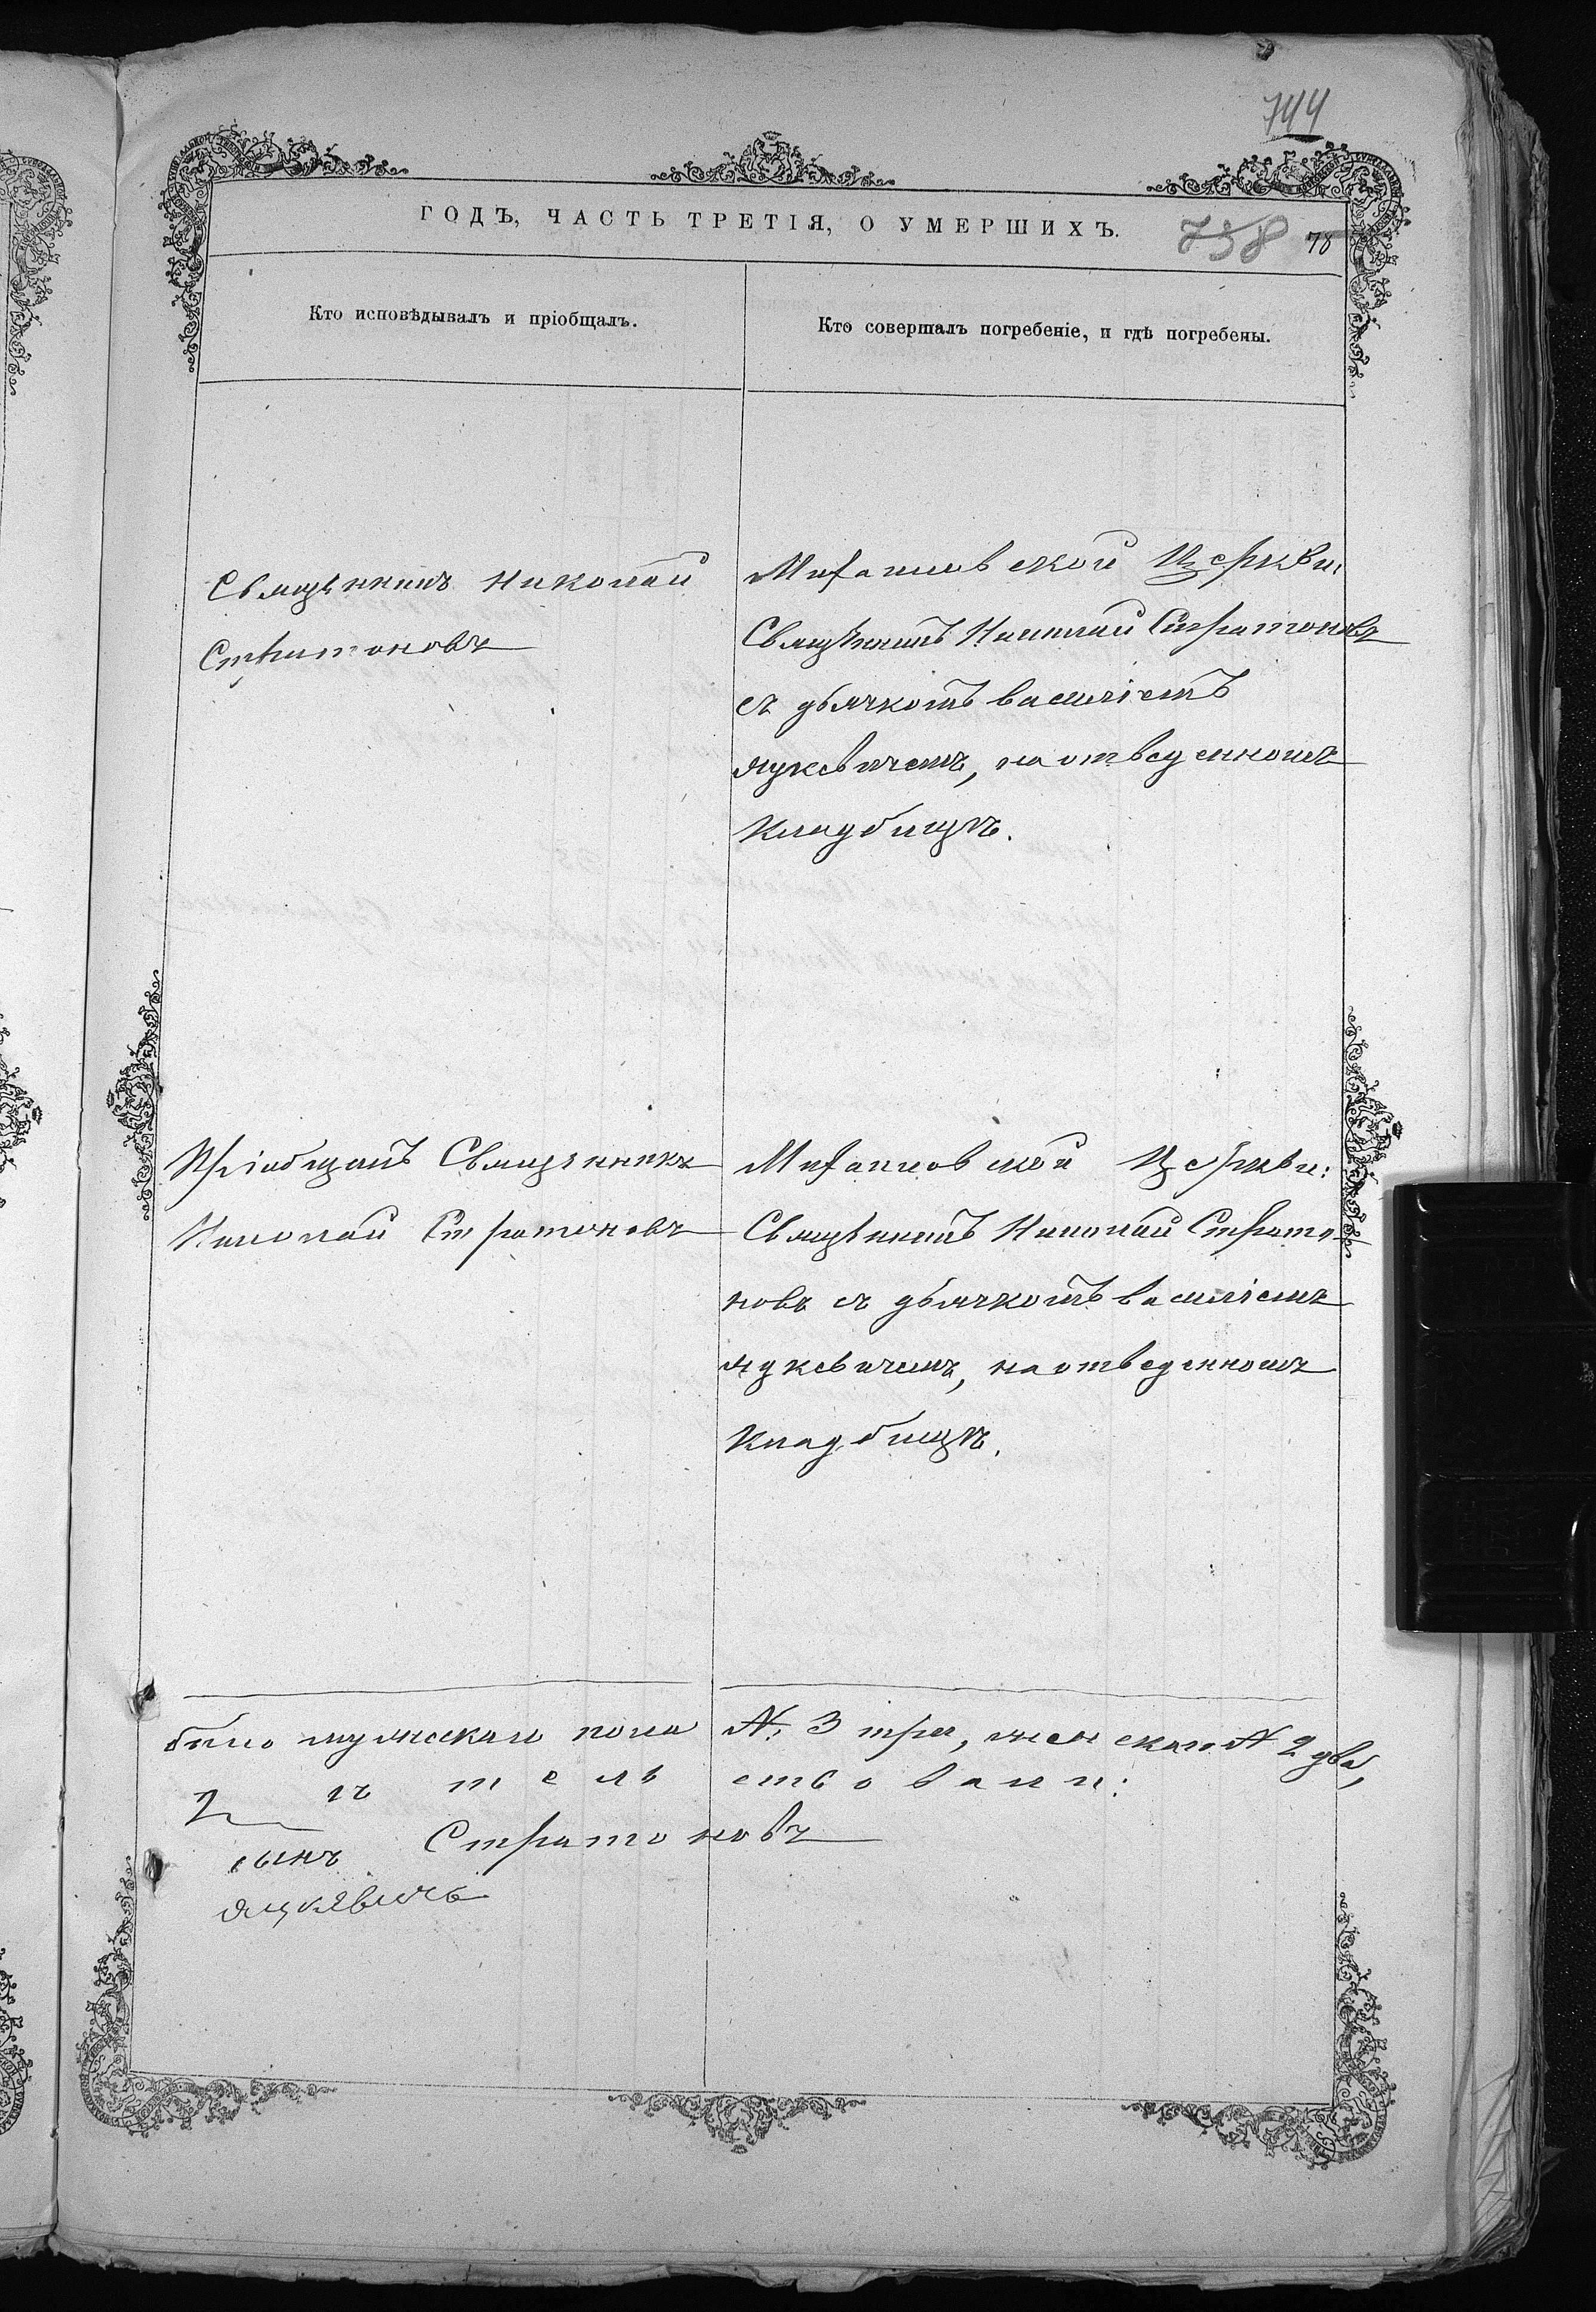 744
ГОДЪ, ЧАСТЬ ТРЕТІЯ, О УМЕРШИХЪ.
738 78
Кто исповѣдывалъ и пріобщалъ.
Кто совершалъ погребеніе, и гдѣ погребены.
Священникъ Николай
Стратоновъ
церкви,
Священникъ Николай Стратоновъ
съ дьячкомъ Василіемъ
Яцкевичемъ, на отведенномъ
Кладбищѣ.
Пріобщалъ Священникъ
Николай Стратоновъ
Церкви:
Священникъ Николай Страто-
новъ съ дьячкомъ Василіемъ
Яцкевичемъ, на отведенномъ
Кладбищѣ.
было мужскаго пола № 3 три, женскаго № 2 два,
тельствовали:
сынъ Стратоновъ
Яцкевичъ